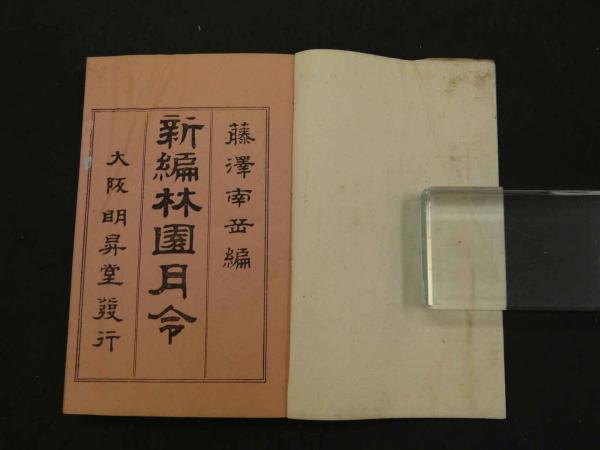 藤澤南岳編
新編林園月令
大阪明昇堂發行